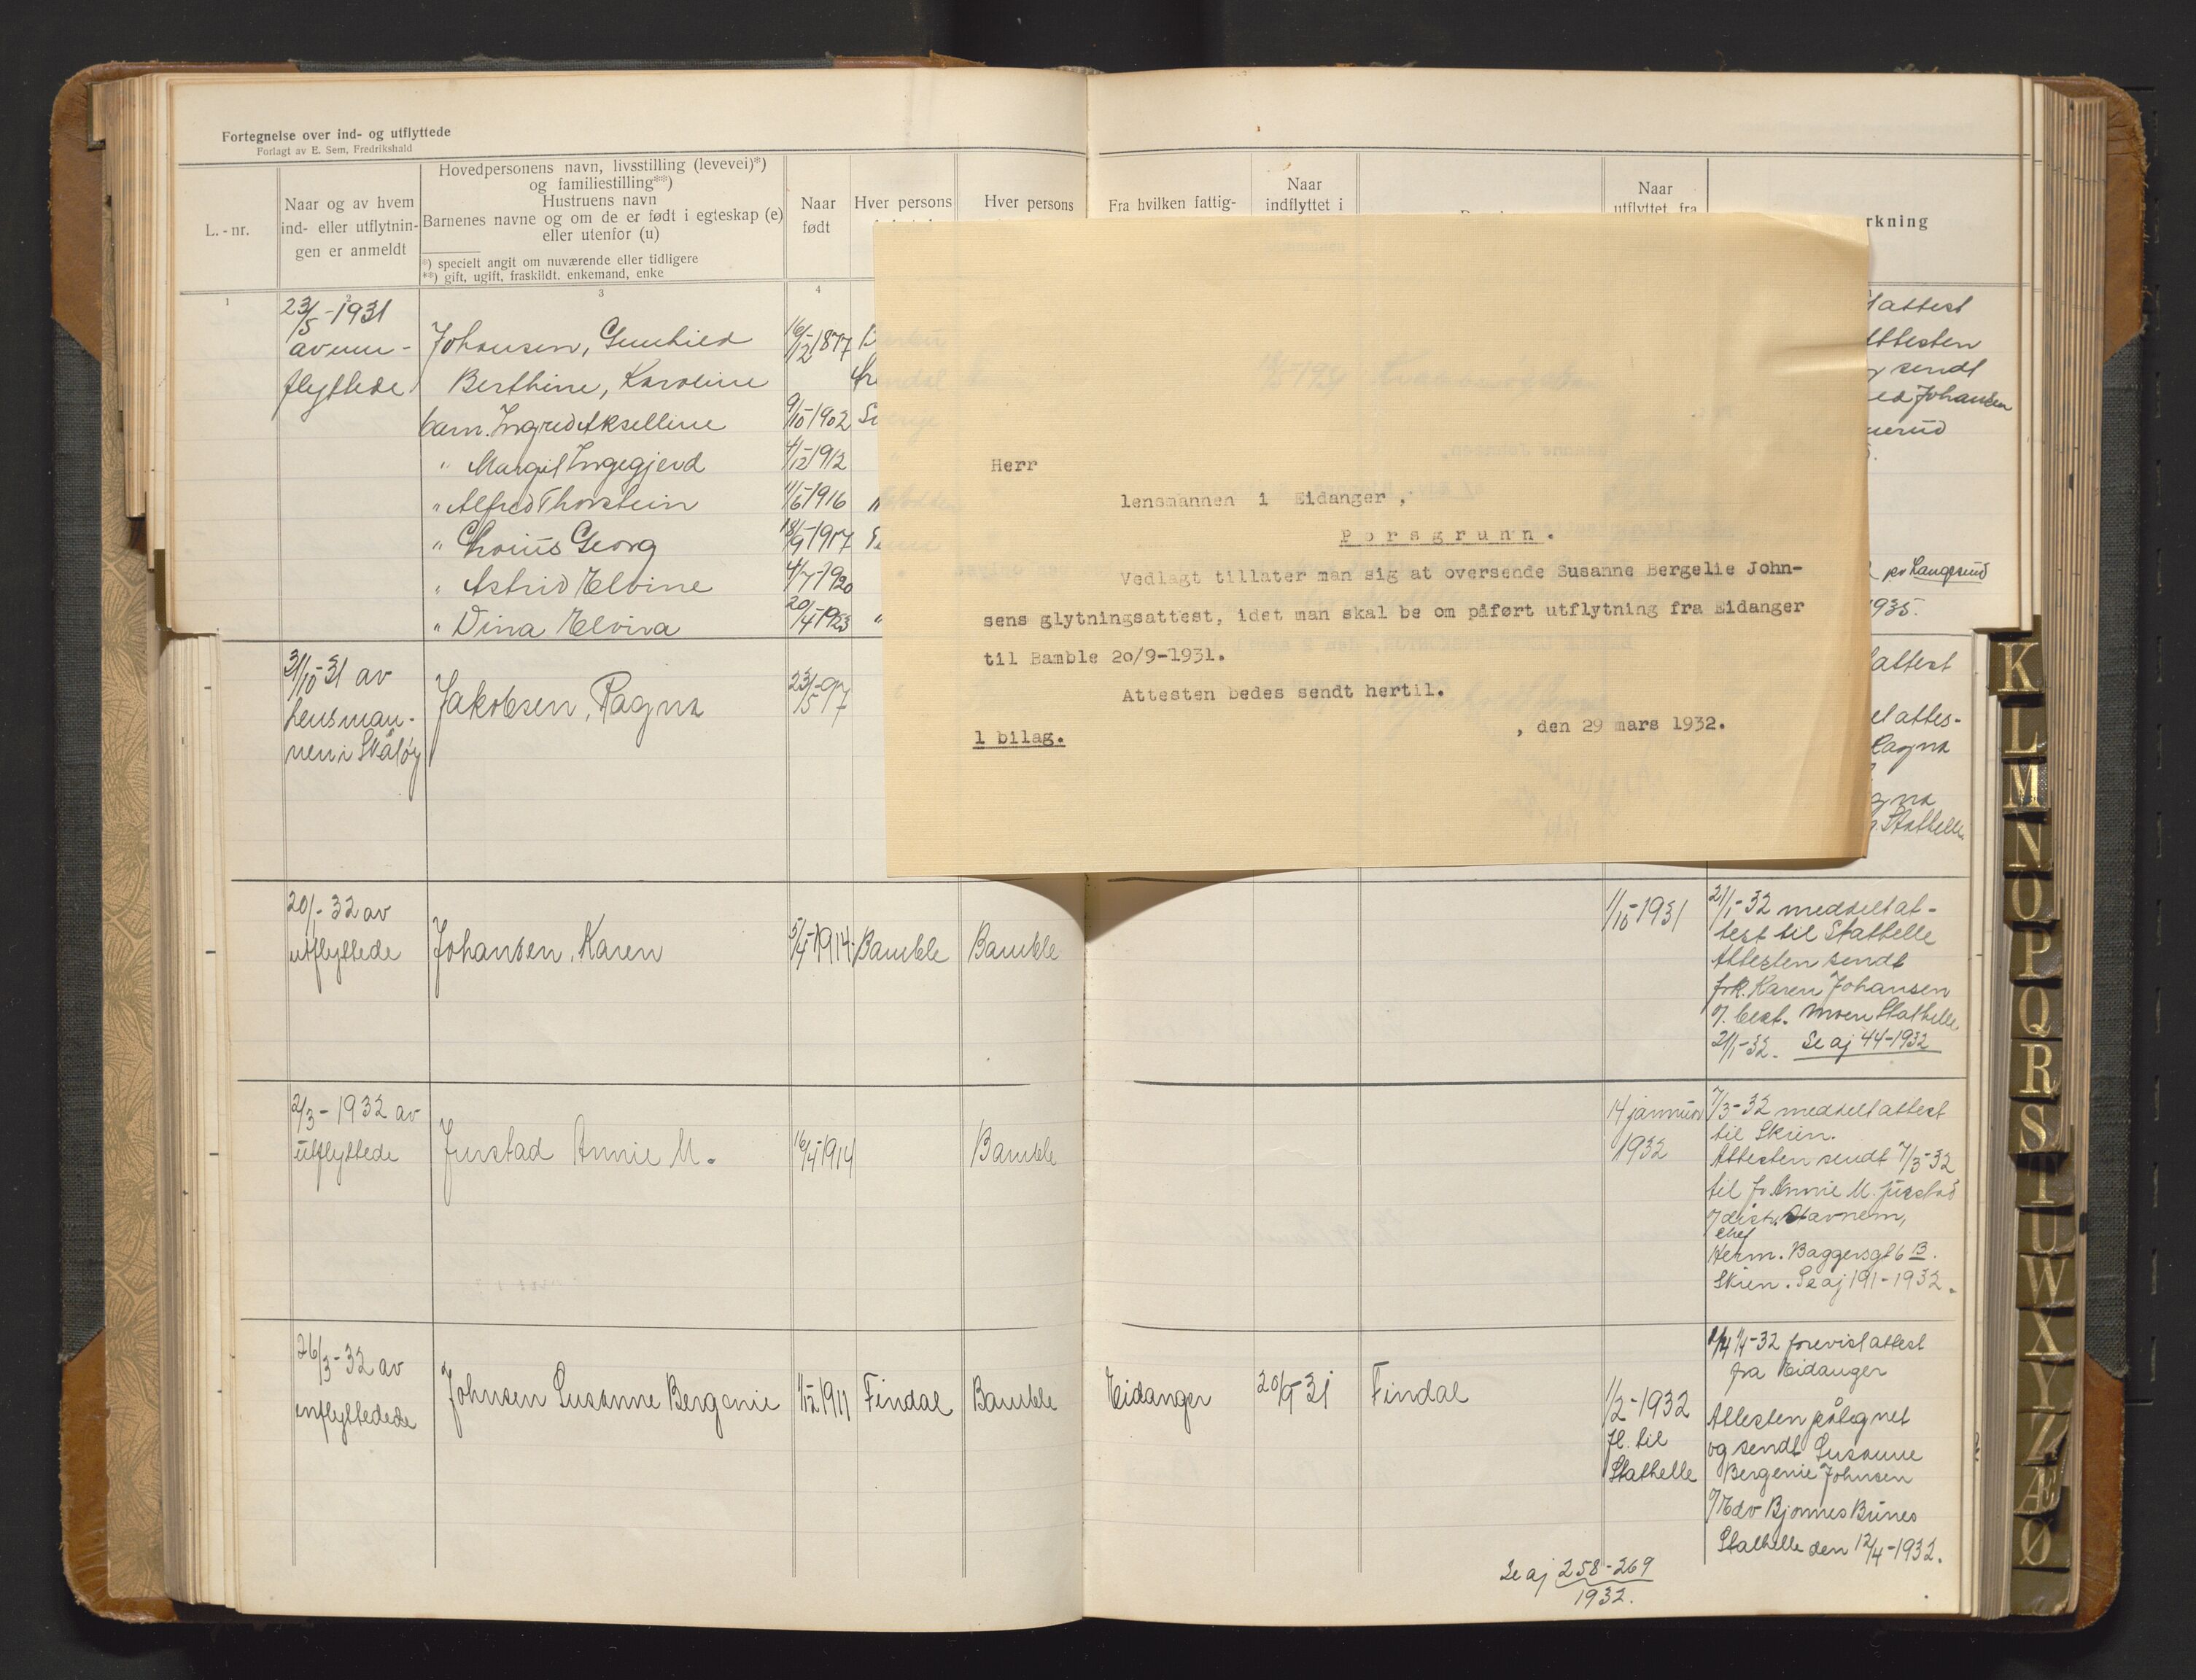 Fortegnelse over ind- og utflyttede
Forlagt av E. Sem, Fredrikshald
L. - nr.
Naar og av hvem
ind- eller utflytnin-
gen er anmeldt
Hovedpersonens navn, livsstilling (levevei)*)
og familiestilling**)
Hustruens navn
Barnenes navne og om de er født i egteskap (e)
eller utenfor (u)
*) specielt angit om nuværende eller tidligere
**) gift, ugift, fraskildt, enkemand, enke
Naar
født
Hver persons
Hver persons
Fra hvilken fattig-
Naar
indflyttet i
Naar
utflyttet fra
rkning
1
2
3
4
23/5-1931
av
flyttede
Johansen, Gunhild
Berthine, Karoline
16/12-1877
barn. Ingrid Akselline
9/10-1902
" Margit Ingegjerd
4/12-1912
" Alfred Thorstein
11/6-1916
" Georg
18/9-1917
" Astrid Elvine
4/7-1920
" Dina Elvira
20/4-1923
attest
Attesten
sendt
Johansen
Langesund
1935.
Herr
lensmannen i Eidanger,
Porsgrunn.
Vedlagt tillater man sig at oversende Susanne Bergelie John-
sens glytningsattest, idet man skal be om påført utflytning fra Eidanger
til Bamble 20/9-1931.
Attesten bedes sendt hertil.
, den 29 mars 1932.
1 bilag.
31/10-31 av
lensman-
nen i Skåtøy
Jakobsen, Ragna
23/5-97
attest
attes-
Ragna
Stathelle
20/1-32 av
utflyttede
Johansen, Karen
5/4-1914
Bamble
Bamble
1/10-1931
21/1-32 meddelt at-
test til Stathelle
Attesten sendt
frk. Karen Johansen
Moen Stathelle
21/1-32. Se aj 44-1932
2/3-1932 av
utflyttede
Jurstad Annie M.
16/4-1914
Bamble
14 januar
1932
7/3-32 meddelt attest
til Skien.
Attesten sendt 7/3-32
til fr. Annie M. Jurstad
chef
Herm. Baggersgt 6 B.
Skien. Se aj 191-1932.
26/3-32 av
innflyttedede
Johnsen Susanne Bergenie
1/12-1911
Findal
Bamble
Eidanger
20/9-31
Findal
1/2-1932
fl. til
Stathelle
1/4-32 forevist attest
fra Eidanger
Attesten påtegnet
og sendt Susanne
Bergenie Johnsen
Bjønnes Bunes
Stathelle den 12/4-1932.
Se aj 258-269
1932.
K
L
M
N
O
P
Q
R
S
T
U
W
X
Y
Z
Æ
Ø